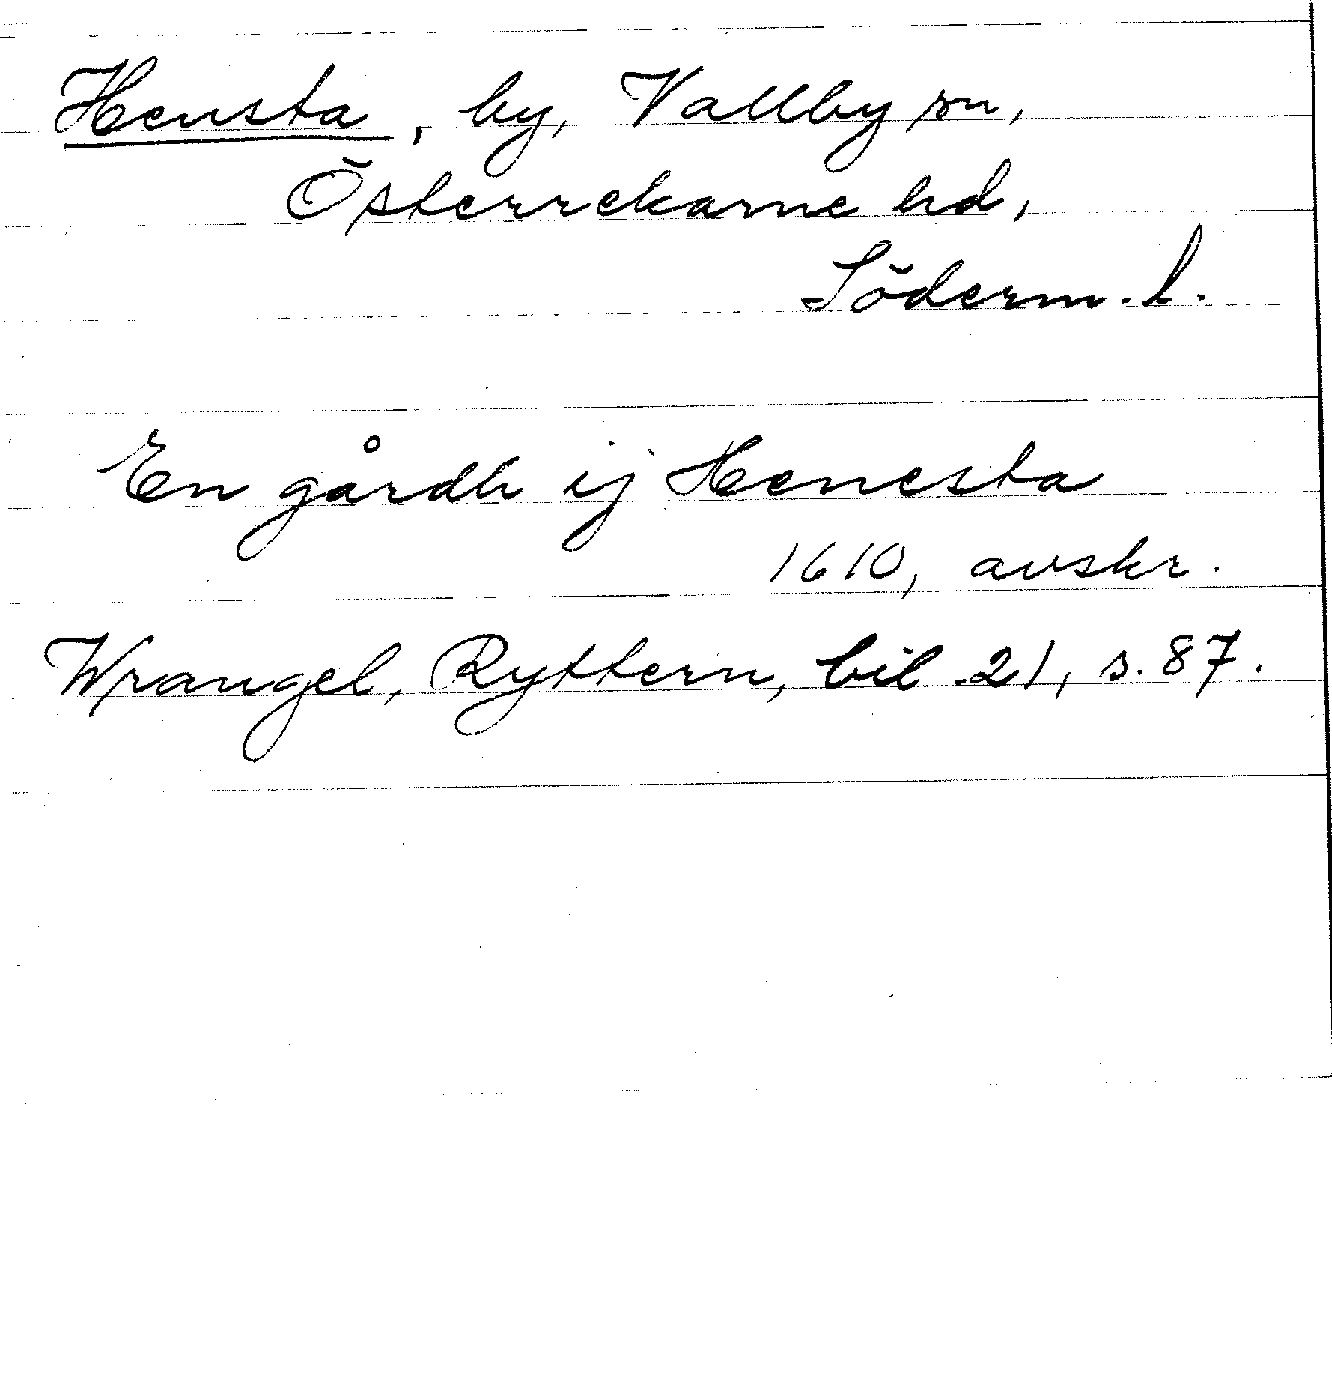 Hensta, by, Vallby sn,
Österrekarne hd,
Söderm. l.
En gårdh ij Henesta
1610, avskr.
Wrangel, Ryttern, bil. 21, s. 87.